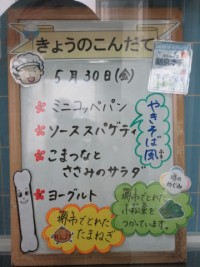 きょうのこんだて
5月30日(金)
ミニコッペパン
ソーススパゲティ
やきそば風
こまつなと
ささみのサラダ
ヨーグルト
堺市でとれた
小松菜を
つかっています。
堺市でとれた
たまねぎ